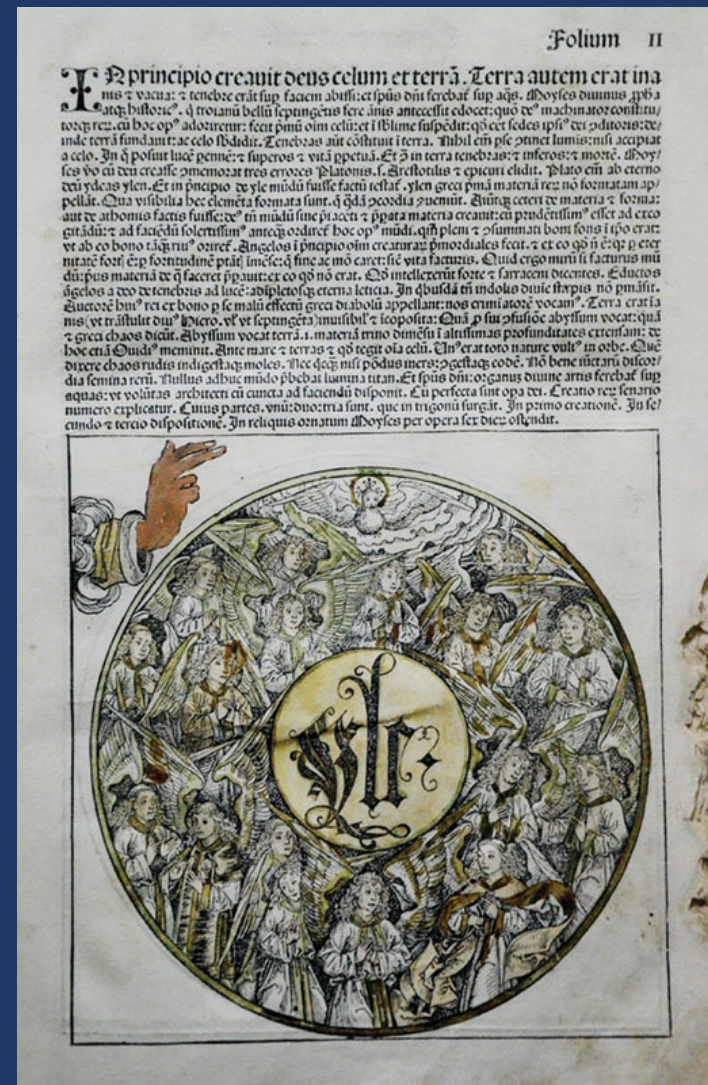 Folium II
IN principio creauit deus celum et terrã. Terra autem erat ina
nis ⁊ vacua: ⁊ tenebre erãt sup faciem abissi: et spũs dñi ferebať sup aq̃s. Moyses diuinus ꝓpħa
atqꝫ historicꝰ. q̇ troianũ bellũ septingẽtis fere ãnis antecessit edocet: quõ deꝰ machinator constitu/
torqꝫ reꝝ. cũ hoc opꝰ adoriretur: fecit pͥmũ oim celũ: et ĩ sblime suspẽdit: qð eẽt sedes ipsiꝰ dei ↄditoris: de/
inde terrã fundauit: ac celo sbdidit. Tenebras aũt cõstituit ĩ terra. Nihil eĩm pse ↄtinet lumis: nisi accipiat
a celo. In q̃ posuit lucẽ pennẽ: ⁊ superos ⁊ vitã ꝑpetuã. Et ꝯͣ in terra tenebras: ⁊ inferos: ⁊ mortẽ. Moy/
ses ꝟo cũ deũ creasse ↄmemorat tres errores Platonis. ſ. Arestotilis ⁊ epicuri elidit. Plato eĩm ab eterno
deũ ydeas ylen. Et in pͥncipio de yle mũdũ fuisse factũ testať. ylen greci pͥmã materiã reꝝ nõ formatam ap/
pellãt. Qua visibilia hec elemẽta formata sunt. q̃ q̃dã ↄcordia ↄueniũt. Aiũtqꝫ ceteri de materia ⁊ forma:
aut de athomis factis fuisse: deꝰ tñ mũdũ sine p̃iacẽti ⁊ p̃pata materia creauit: cũ prudẽtissimꝰ esset ad exco
gitãdũ: ⁊ ad faciẽdũ solertissimꝰ anteqꝫ ordiret̃ hoc opꝰ mũdi. qm̃ pleni ⁊ ↄsummati boni fons ĩ ipo erat:
vt ab eo bono tãqꝫ riuꝰ oriret̃. Angelos ĩ pͥncipio oĩm creaturaꝝ pͥmordiales fecit. ⁊ ex eo qð ñ ẽ: qꝛ ꝑ eter
nitatẽ fortĩ ẽ: ꝑ fortitudinẽ ptãtĩ ĩmẽse: q̃ fine ac mõ caret: sic̃ vita facturis. Quid ergo mirũ si facturus mũ
dũ: pͥus materiã de q̃ faceret p̃pauit: ex eo qð nõ erat. Qð intellexerũt forte ⁊ sarraceni dicentes. Eductos
ãgelos a deo de tenebris ad lucẽ: adĩpletosqꝫ eterna leticia. In q̇busdã tñ indolis diuĩe stirpis nõ pmãsit.
Auctorẽ huiꝰ rei ex bono ꝑ se malũ effectũ greci diabolũ appellant: nos crimĩatorẽ vocamꝰ. Terra erat ĩa
nis (vt trãstulit diuꝰ Hiero. vl̕ vt septingẽta) inuisibil̕ ⁊ ĩcoposita: Quã ꝓ sui ↄfusiõe abyssum vocat: quã
⁊ greci chaos dicũt. Abyssum vocat terrã .i. materiã trino dimẽsu ĩ altissimas profunditates extensam: de
hoc etiã Ouidiꝰ meminit. Ante mare ⁊ terras ⁊ qð tegit oĩa celũ. Unꝰ erat toto nature vultꝰ in orbe. Quẽ
dixere chaos rudis indigestaqꝫ moles. Nec q̇cqꝫ nisi põdus iners: ↄgestaqꝫ eodẽ. Nõ bene iũctarũ discor/
dia semina rerũ. Nullus adhuc mũdo p̃bebat lumina titan. Et spũs dñi: organus diuine artis ferebať sup
aquas: vt volũtas architecti cũ cuncta ad faciendũ disponit. Cũ perfecta sint opa dei. Creatio reꝝ senario
numero explicatur. Cuius partes. vnũ: duo: tria sunt. que in trigonũ surgãt. In primo creationẽ. In se/
cundo ⁊ tercio dispositionẽ. In reliquis ornatum Moyses per opera sex dieꝝ ostendit.
Yle